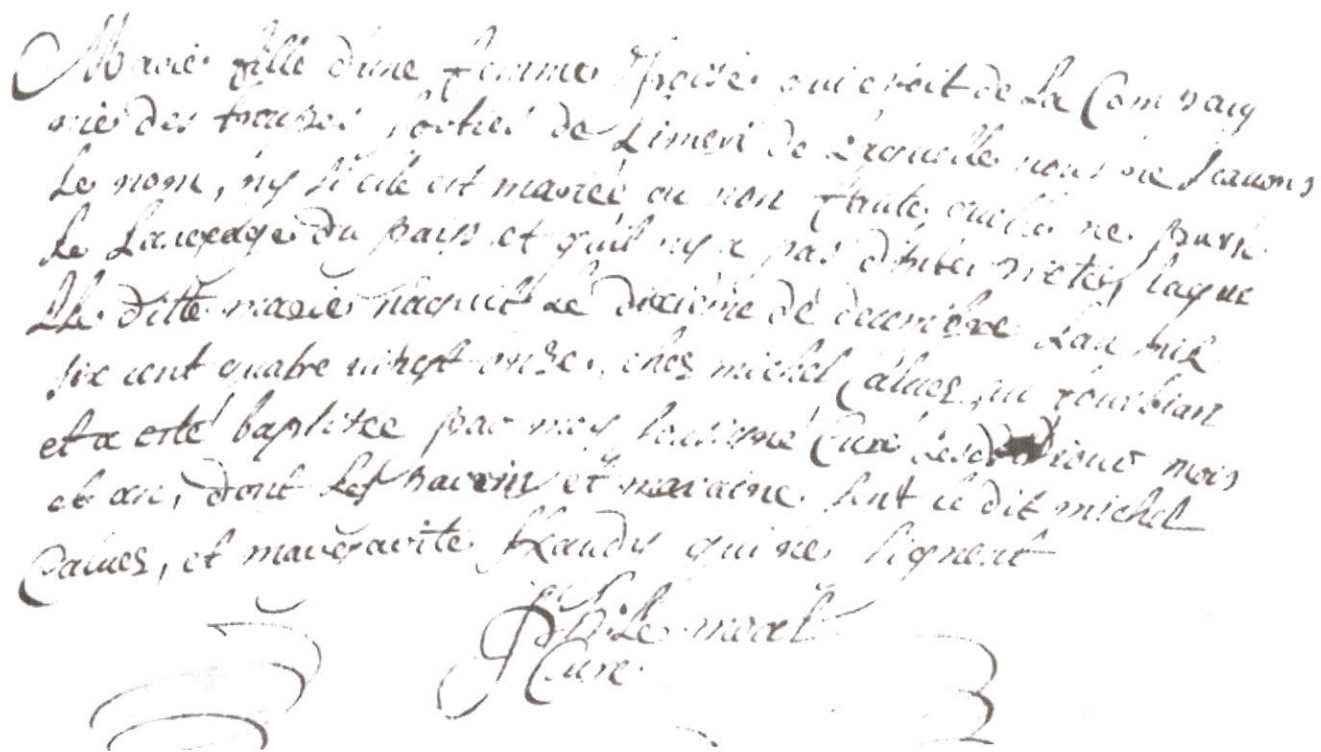 Marie fille d'une femme Jroise qui étoit de la Compaig
nie des troupes sorties de Limeri de laquelle nous ne scavons
le nom, ny si elle est mariée ou non faute quelle ne parle
le langage du païs et qu'il ny a pas d'interpretes, laque
lle ditte marie naquit le dixième de decembre l'an mil
six cent quatre vingt onze, chez michel Calvez, au fourbian
et a esté baptisée par moy soussiné Curé lesd jour mois
et an, dont les parein et maraine sont le dit michel
Calvez, et marguarite flandy qui ne signent
Ph: Le moal
Curé